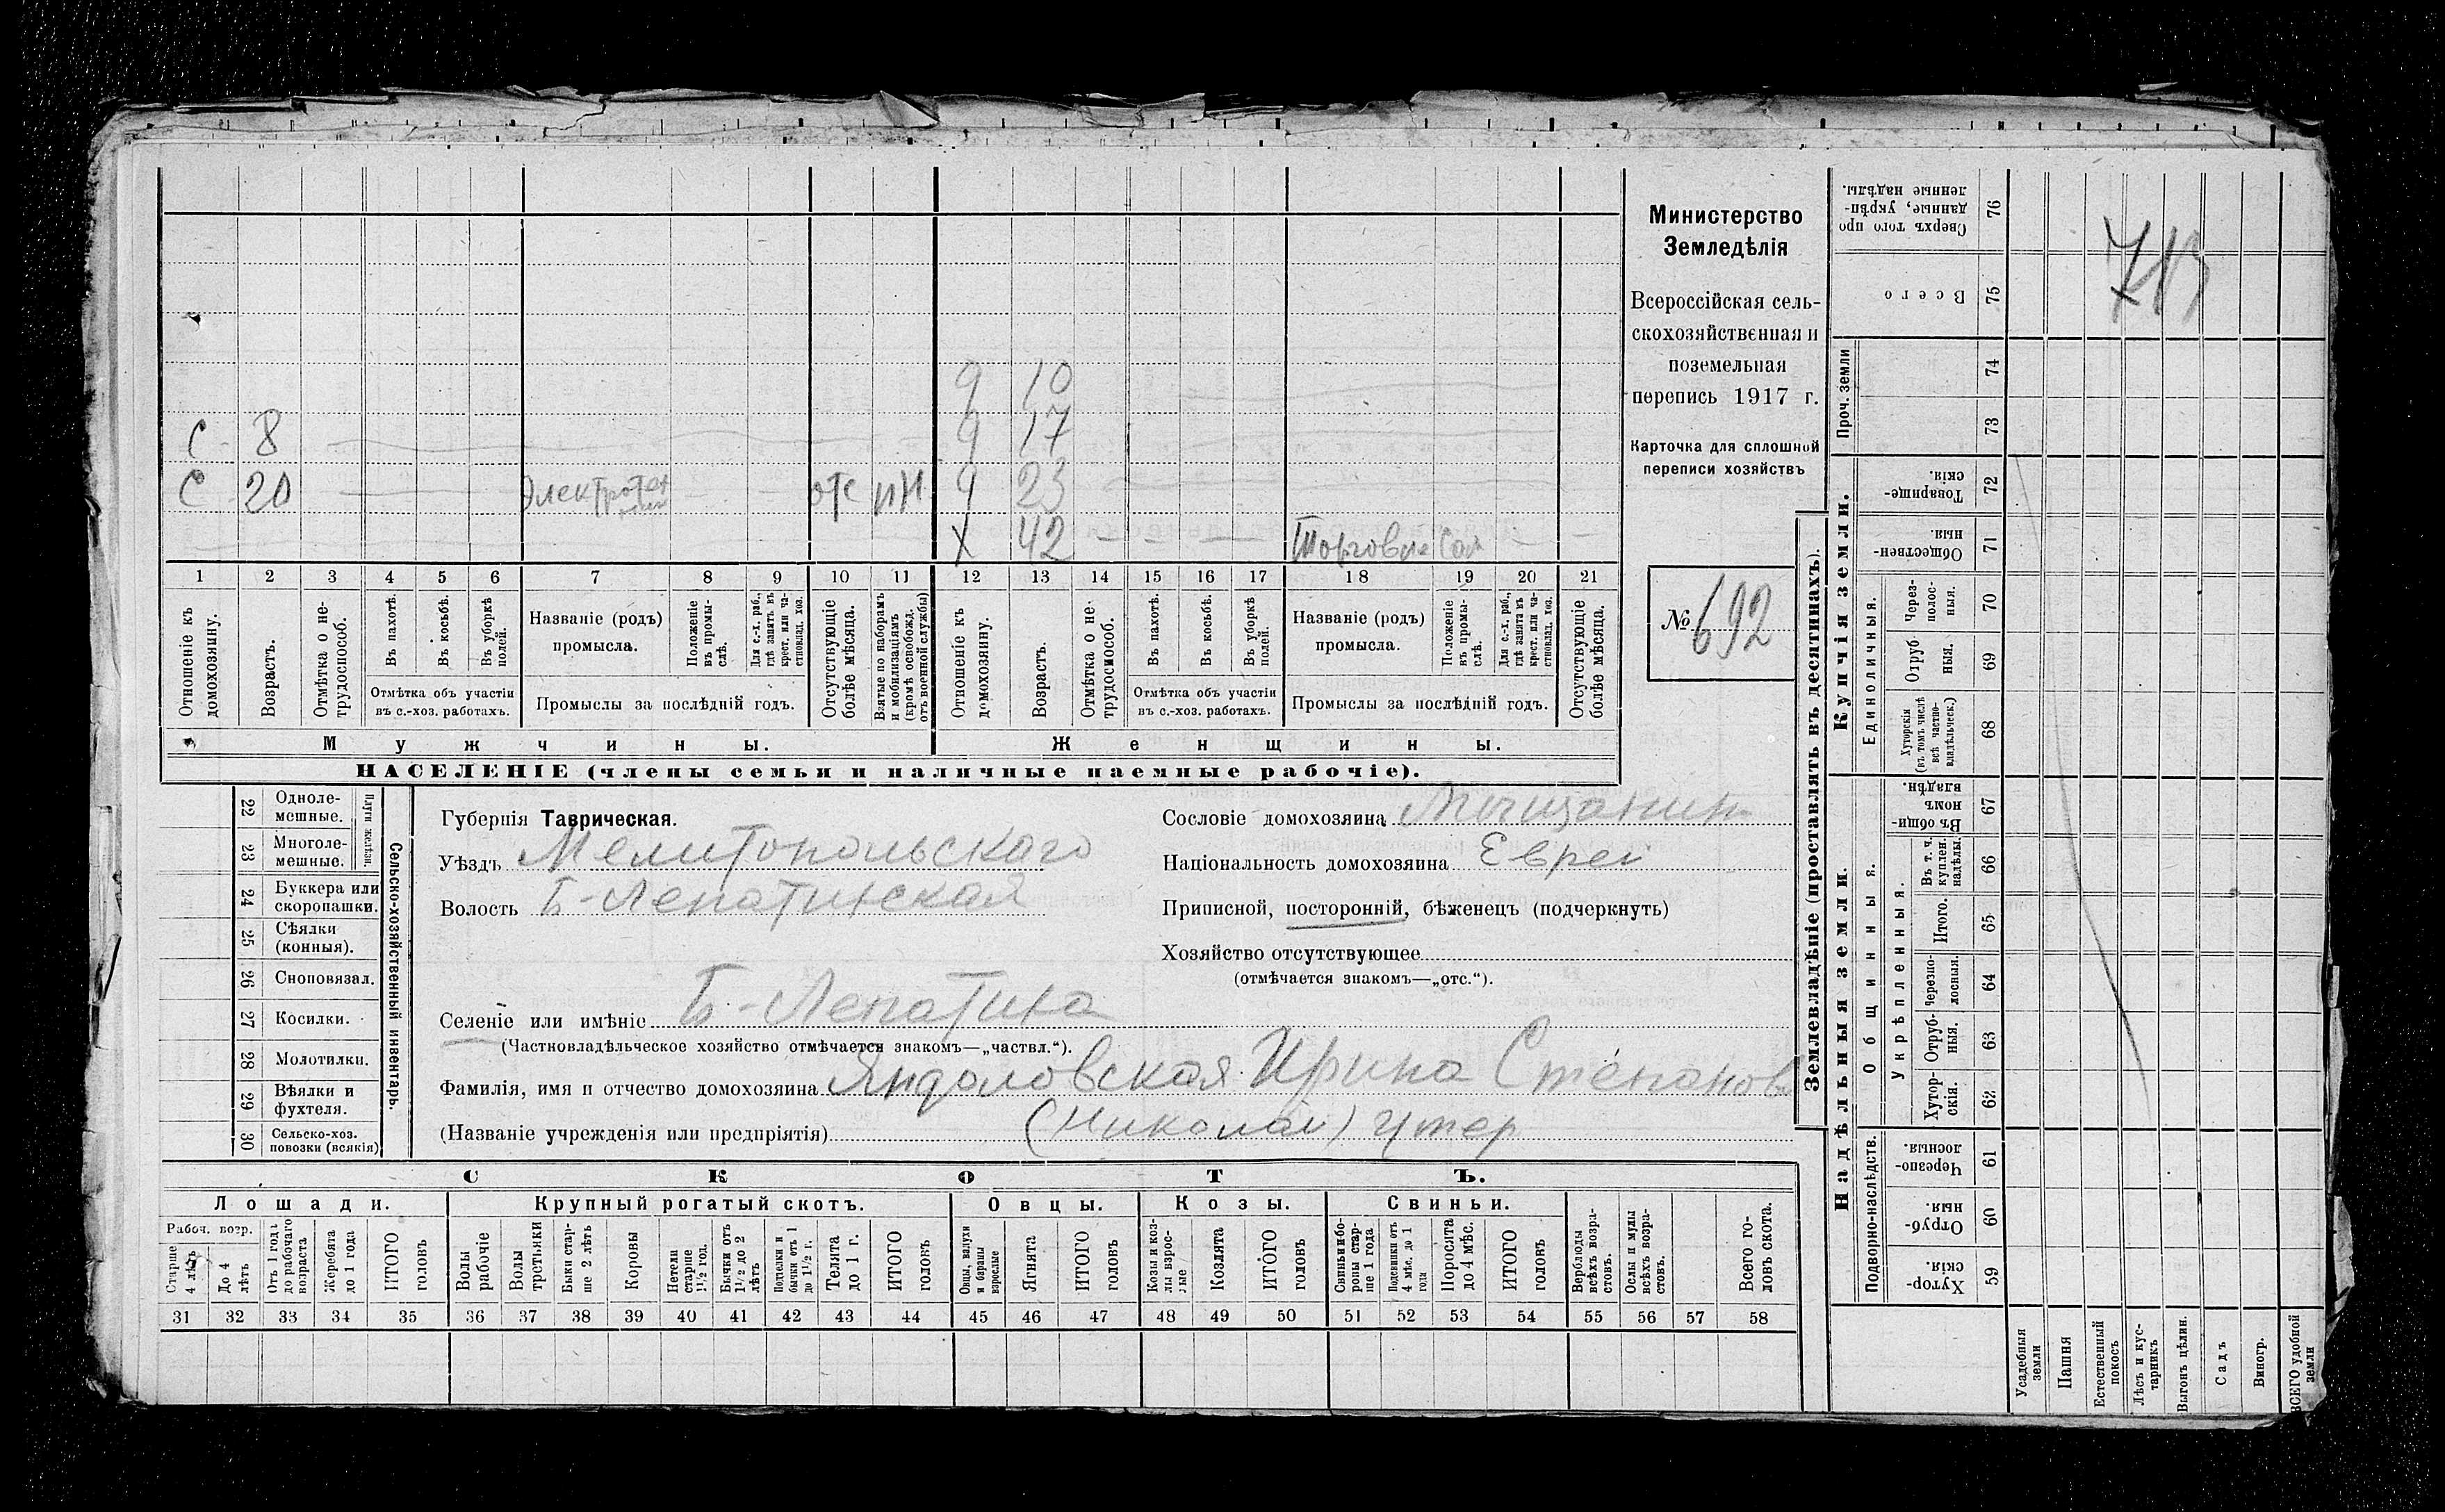 Министерство
Земледѣлія
Всероссійская сель-
скохозяйственная и
поземельная
перепись 1917 г.
Карточка для сплошной
переписи хозяйствъ
№ 692
713
9 10
С 8 9 17
С 20 отс 9 23
Х 42 Торговля
1 2 3 4 5 6 7 8 9 10 11 12 13 14 15 16 17 18 19 20 21
Отношеніе къ домохозяину.
Возрастъ.
Отмѣтка о не-трудоспособ.
Въ пахотѣ.
Въ косьбѣ.
Въ уборкѣ полей.
Отмѣтка объ участіи
въ с.-хоз. работахъ.
Названіе (родъ)
промысла.
Положеніе въ промы-слѣ.
Для с.-х. раб., гдѣ занятъ въ крест. или ча-стновлад. хоз.
Промыслы за послѣдній годъ.
Отсутствующіе болѣе мѣсяца.
Взятые по наборамъ и мобилизаціямъ (кромѣ освобожд. отъ военной службы)
Отношеніе къ домохозяину.
Возрастъ.
Отмѣтка о не-трудоспособ.
Въ пахотѣ.
Въ косьбѣ.
Въ уборкѣ полей.
Отмѣтка объ участіи
въ с.-хоз. работахъ.
Названіе (родъ)
промысла.
Положеніе въ промы-слѣ.
Для с.-х. раб., гдѣ занята въ крест. или ча-стновлад. хоз.
Промыслы за послѣдній годъ.
Отсутствующіе болѣе мѣсяца.
Мужчины.
Женщины.
НАСЕЛЕНІЕ (члены семьи и наличные наемные рабочіе).
22 Одноле-мешные.
23 Многоле-мешные.
Плуги желѣзн.
24 Буккера или скоропашки.
25 Сѣялки (конныя).
26 Сноповязал.
27 Косилки.
28 Молотилки.
29 Вѣялки и фухтеля.
30 Сельско-хоз. повозки (всякія)
Сельско-хозяйственный инвентарь.
Губернія Таврическая.
Уѣздъ Мелитопольскаго
Волость Б-Лепатинская
Селеніе или имѣніе Б-Лепатиха
(Частновладѣльческое хозяйство отмѣчается знакомъ—„частвл.“).
Фамилія, имя и отчество домохозяина Ирина Степанов
(Названіе учрежденія или предпріятія) (Николай) умер
Сословіе домохозяина Мѣщанин
Національность домохозяина Еврей
Приписной, посторонній, бѣженецъ (подчеркнуть)
Хозяйство отсутствующее
(отмѣчается знакомъ—„отс.“).
СКОТЪ.
Лошади. Крупный рогатый скотъ. Овцы. Козы. Свиньи.
Рабоч. возр.
Старше 4 лѣтъ
До 4 лѣтъ
Отъ 1 года до рабочаго возраста
Жеребята до 1 года
ИТОГО головъ
Волы рабочіе
Волы третьяки
Быки стар-ше 2 лѣтъ
Коровы
Нетели старше 1½ год.
Бычки отъ 1½ до 2 лѣтъ
Подтелки и бычки отъ 1 до 1½ г.
Телята до 1 г.
ИТОГО головъ
Овцы, валухи и бараны взрослые
Ягнята
ИТОГО головъ
Козы и коз-лы взрос-лые
Козлята
ИТОГО головъ
Свиньи и бо-роны стар-ше 1 года
Подсвинки отъ 4 мѣс. до 1 года
Поросята до 4 мѣс.
ИТОГО головъ
Верблюды всѣхъ возра-стовъ.
Ослы и мулы всѣхъ возра-стовъ.
Всего го-ловъ скота.
31 32 33 34 35 36 37 38 39 40 41 42 43 44 45 46 47 48 49 50 51 52 53 54 55 56 57 58
Землевладѣніе (проставлять въ десятинахъ).
Сверхъ того про-данные, укрѣп-ленные надѣлы. 76
Всего 75
Проч. земли
74
73
Купчія земли.
Товарище-скія. 72
Обществен-ныя. 71
Единоличныя.
Через-полос-ныя. 70
Отруб-ныя. 69
Хуторскія (въ томъ числѣ всѣ частно-владѣльческ.) 68
Надѣльныя земли.
Общинныя.
Въ общи-номъ владѣн. 67
Укрѣпленныя.
Въ т. ч. куплен. надѣлы. 66
Итого. 65
Черезпо-лосныя. 64
Отруб-ныя. 63
Хутор-скія. 62
Подворно-наслѣдств.
Черезпо-лосныя 61
Отруб-ныя. 60
Хутор-скія. 59
Усадебныя земли
Пашня
Естественный покосъ
Лѣсъ и кус-тарникъ
Выгонъ цѣлин.
Садъ
Виногр.
ВСЕГО удобной земли